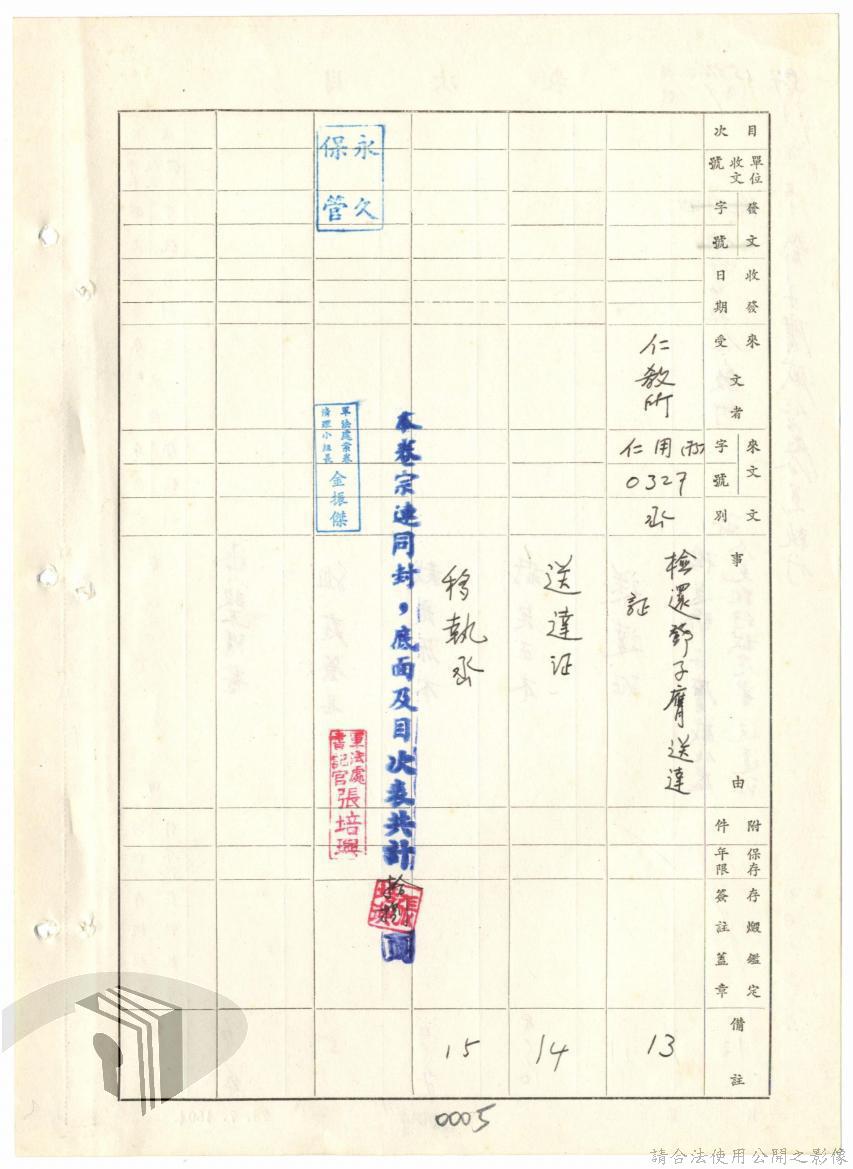 目次
單位收文號
發文字號
收發日期
來文受者
來文字號
文別
事由
附件
保存年限
存燬鑑定簽註蓋章
備註
仁教所
仁用
0327
檢還鄧子膺送達
証
13
送達证
14
移執
15
本卷宗連同封,底面及目次表共計
頁
永久
保管
軍法處案卷
清理小組長
金振傑
軍法處
書記官
張培興
0005
請合法使用公開之影像